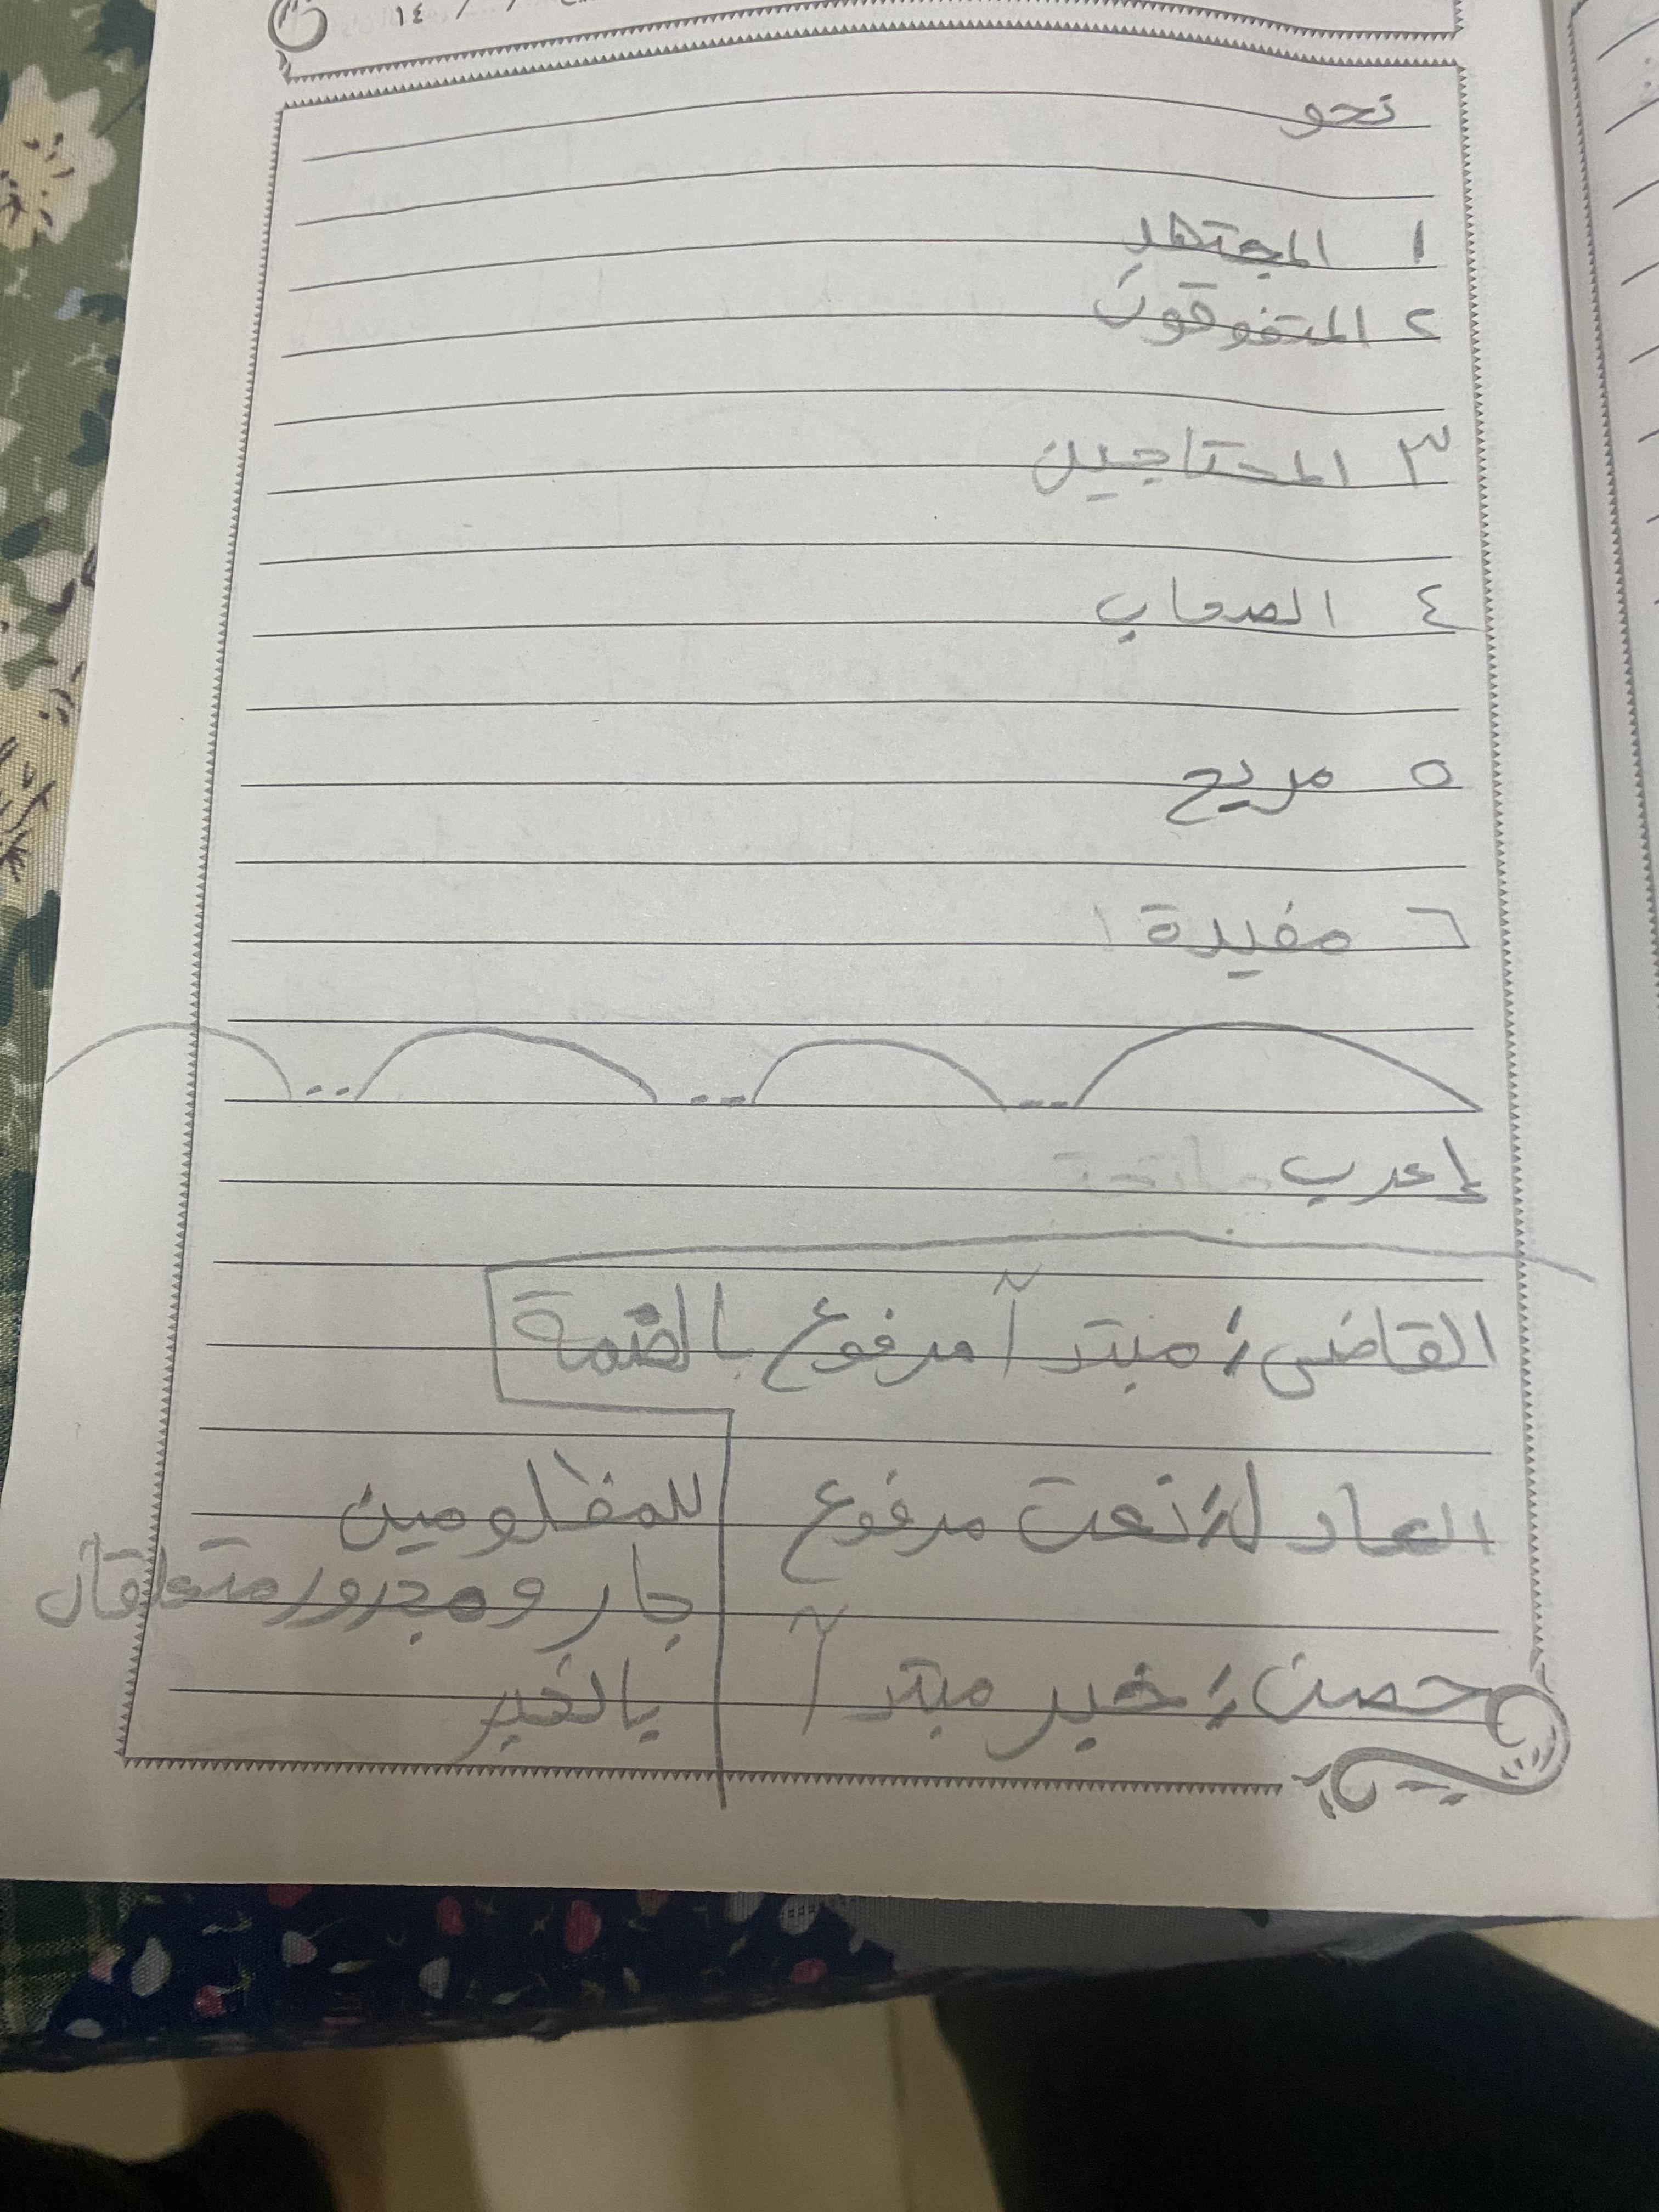 ١٤ / /
نحو
١ المجتهدِ
٢ المتفوقون
٣ المحتاجين
٤ الصعاب
٥ مريح
٦ مفيدة
إعرب
القاضى: مبتدأ مرفوع بالضمة
العادل: نعت مرفوع
حصن: خبر مبتدأ
للمظلومين
جار ومجرور متعلقان
بالخبر